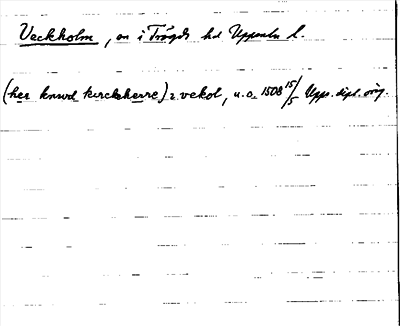 Veckholm, sn i Trögds hd Uppsala l.
(her knwd kirckherre) i vekol, u.o. 1508 15/5 Upps. dipl. orig.